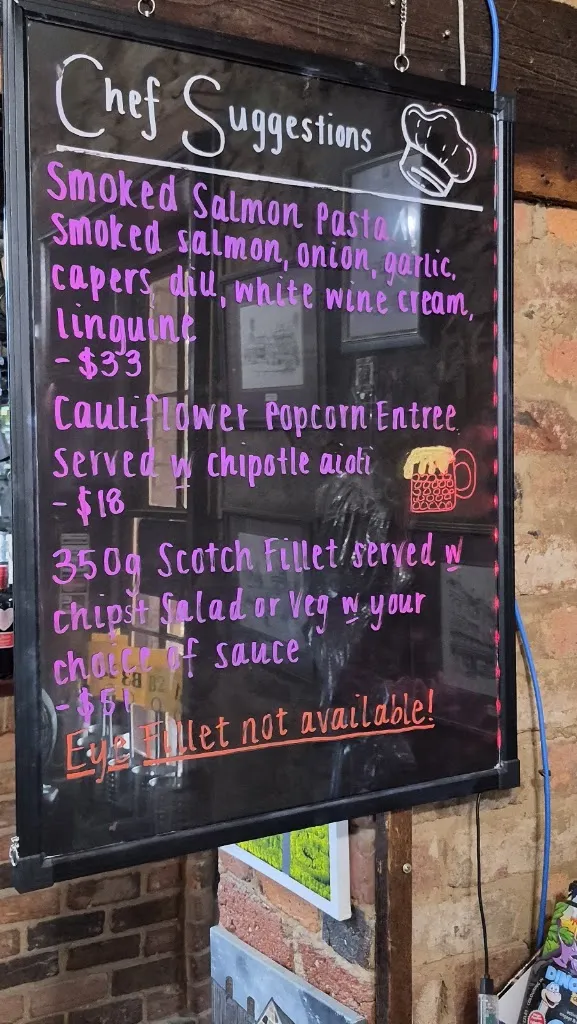 Chef Suggestions
Smoked Salmon Pasta
smoked salmon, onion, garlic,
capers, dill, white wine cream,
linguine
- $33
Cauliflower Popcorn Entree
served w chipotle aioli
- $18
350g Scotch Fillet served w
chips + Salad or Veg w your
choice of sauce
- $51
Eye Fillet not available!
DINO